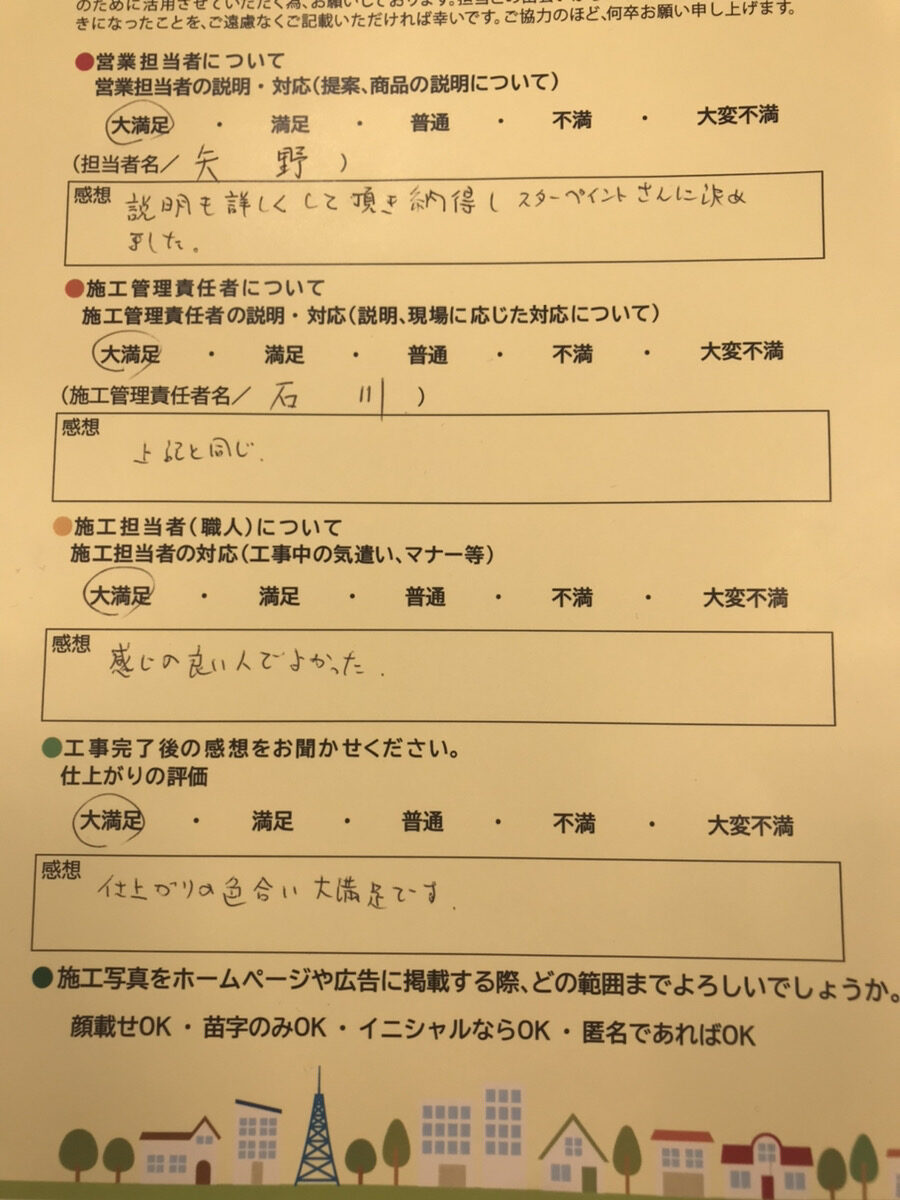 きになったことを、ご遠慮なくご記載いただければ幸いです。ご協力のほど、何卒お願い申し上げます。
●営業担当者について
営業担当者の説明・対応(提案、商品の説明について)
大満足 ・ 満足 ・ 普通 ・ 不満 ・ 大変不満
(担当者名/ 矢 野 )
感想 説明も詳しくして頂き納得し スターペイントさんに決め
ました。
●施工管理責任者について
施工管理責任者の説明・対応(説明、現場に応じた対応について)
大満足 ・ 満足 ・ 普通 ・ 不満 ・ 大変不満
(施工管理責任者名/ 石 川 )
感想
上記と同じ.
●施工担当者(職人)について
施工担当者の対応(工事中の気遣い、マナー等)
大満足 ・ 満足 ・ 普通 ・ 不満 ・ 大変不満
感想
感じの良い人でよかった.
●工事完了後の感想をお聞かせください。
仕上がりの評価
大満足 ・ 満足 ・ 普通 ・ 不満 ・ 大変不満
感想
仕上がりの色合い 大満足です.
●施工写真をホームページや広告に掲載する際、どの範囲までよろしいでしょうか。
顔載せOK・苗字のみOK・イニシャルならOK・匿名であればOK